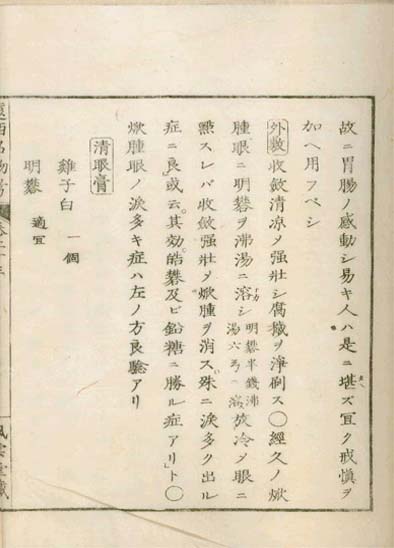 故ニ胃腸ノ感動シ易キ人ハ是ニ堪ズ宜ク戒慎ヲ
加ヘ用フベシ
外敷 收斂清涼メ强壮シ腐穢ヲ淨刷ス〇經久ノ焮
腫眼ニ明礬ヲ沸湯ニ溶シ 明礬半錢沸湯六弓ニ溶 放冷メ眼ニ
點スレバ收斂强壮メ焮腫ヲ消ス殊ニ淚多ク出ル
症ニ良或云其効皓礬及ビ鉛糖ニ勝ル症アリト〇
焮腫眼ノ淚多キ症ハ左ノ方良驗アリ
清眼膏
雞子白 一個
明礬 適宜